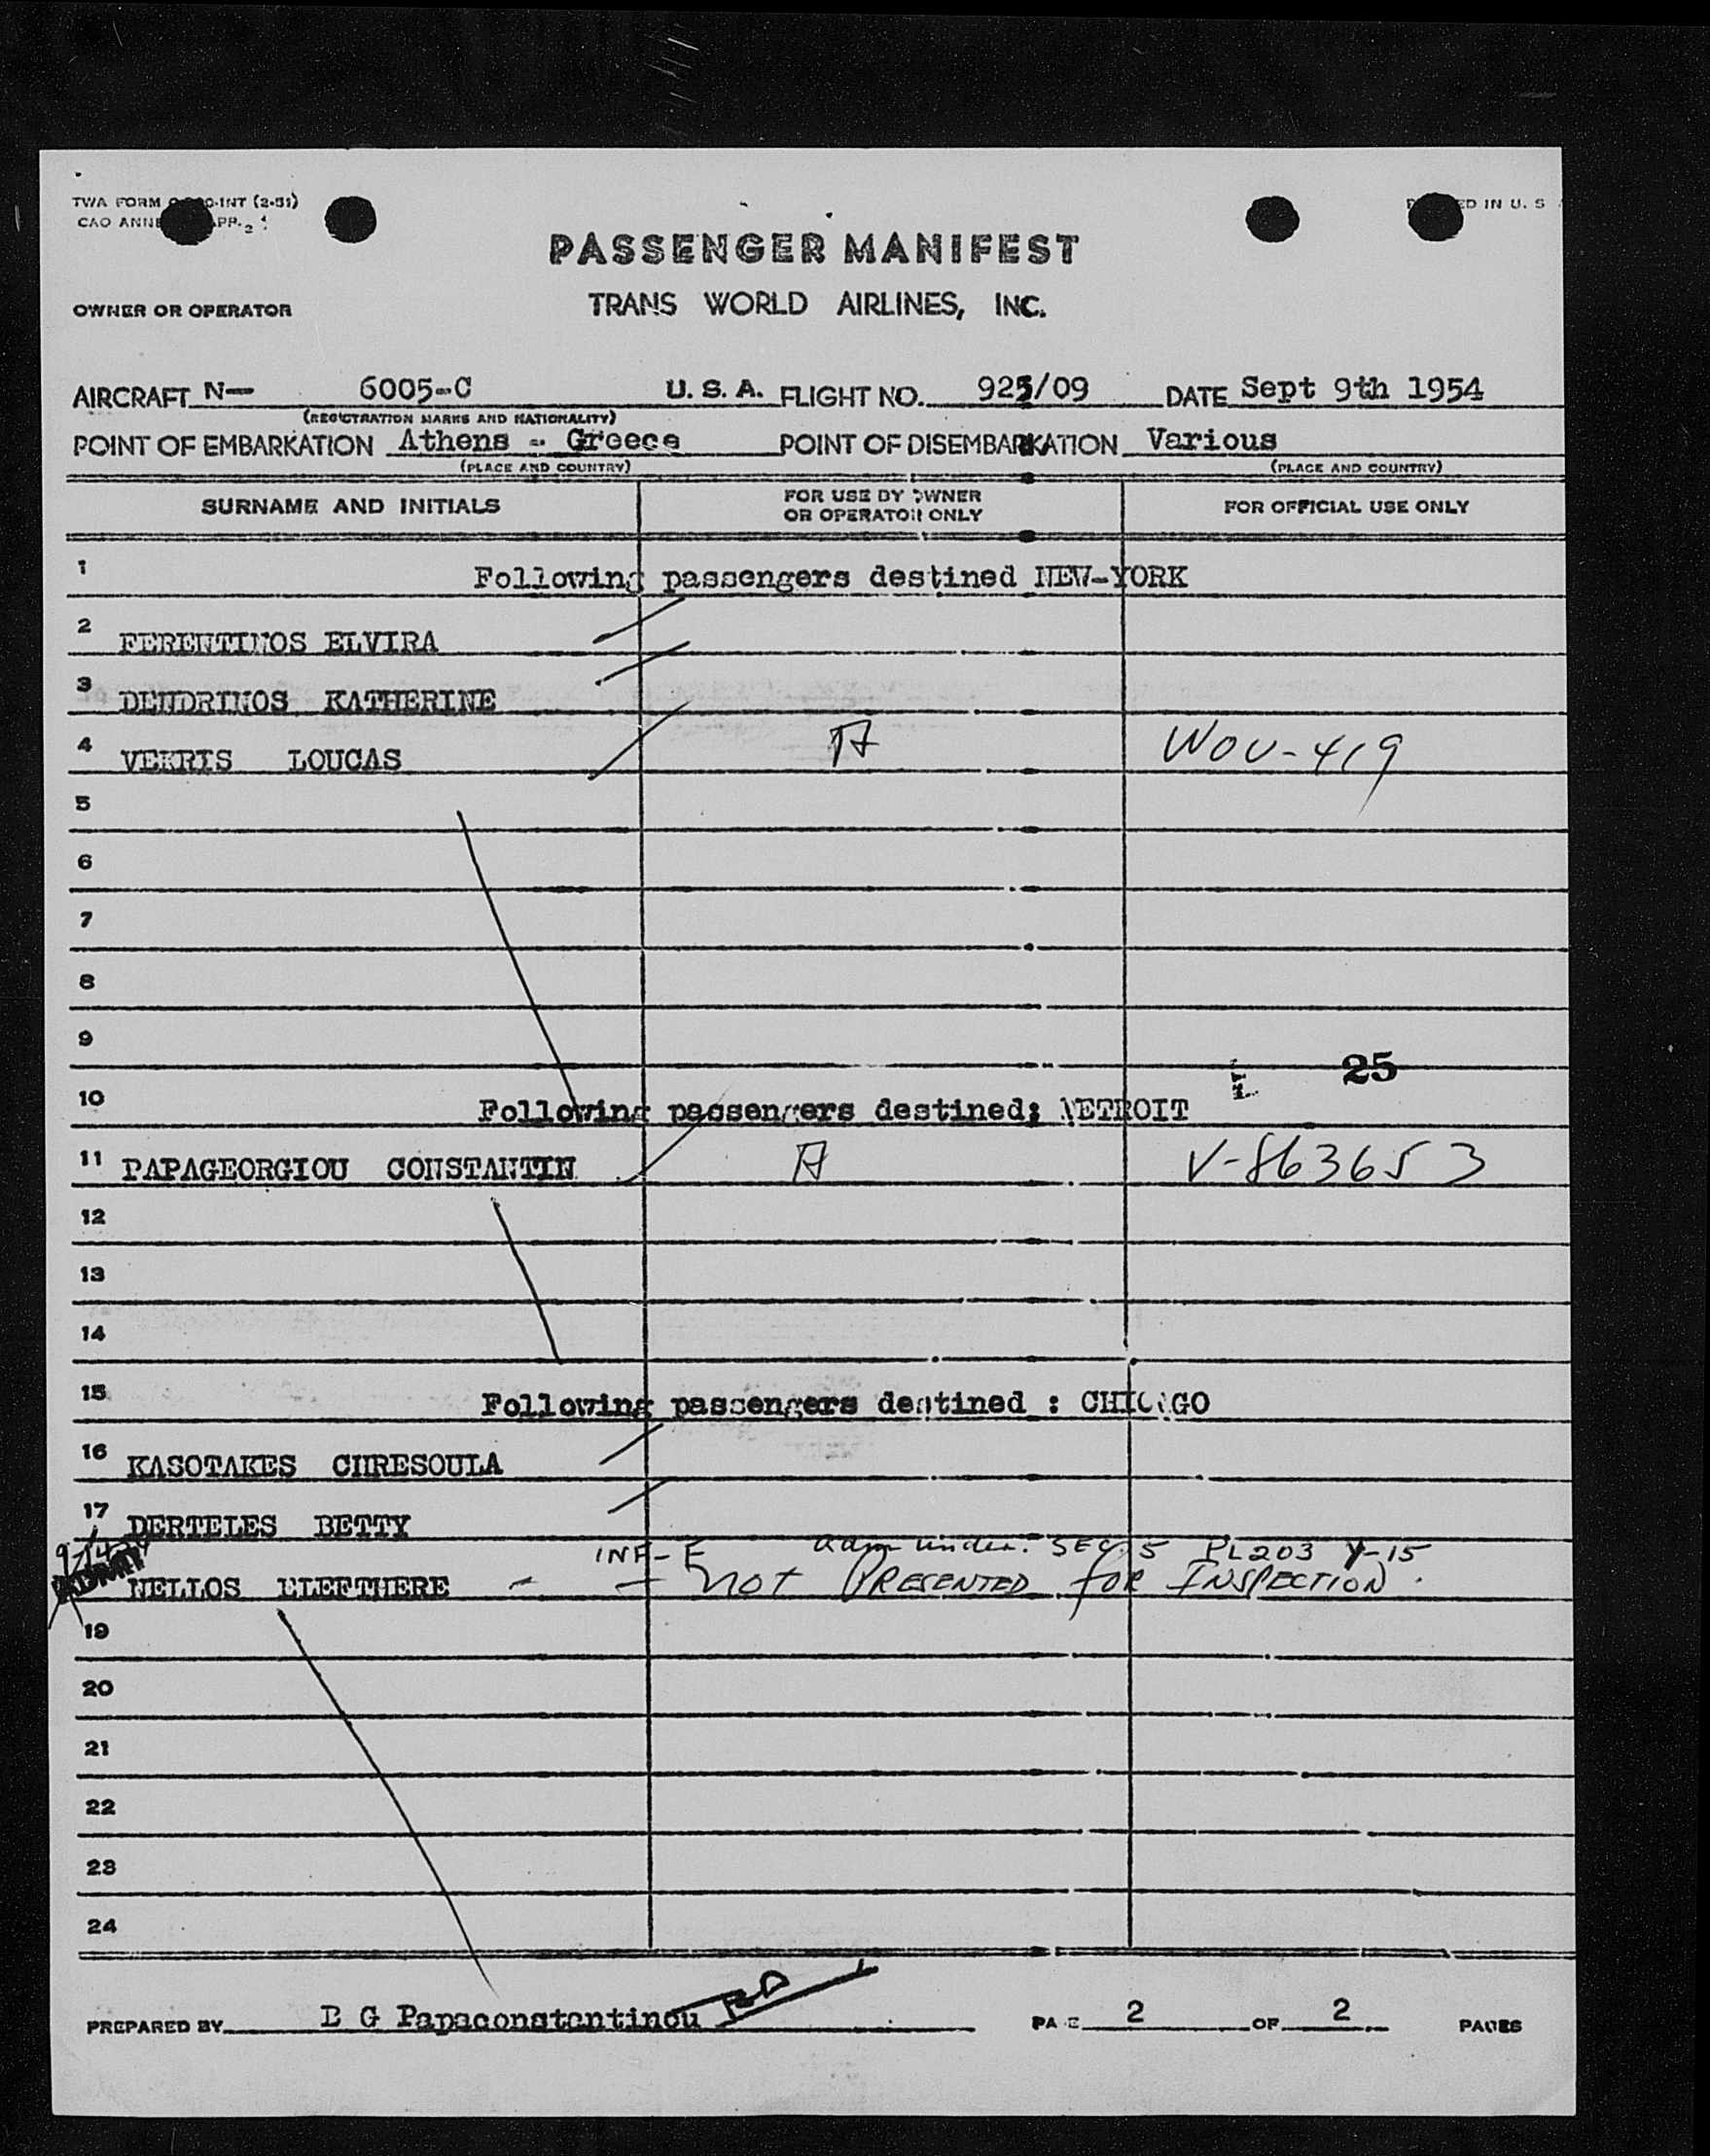 TWA FORM INT (2-51)
CAO ANNE APP. 2
ED IN U. S
PASSENGER MANIFEST
OWNER OR OPERATOR TRANS WORLD AIRLINES, INC.
AIRCRAFT N— 6005-C U. S. A. FLIGHT NO. 925/09 DATE Sept 9th 1954
(REGISTRATION MARKS AND NATIONALITY)
POINT OF EMBARKATION Athens - Greece POINT OF DISEMBARKATION Various
(PLACE AND COUNTRY) (PLACE AND COUNTRY)
SURNAME AND INITIALS FOR USE BY OWNER OR OPERATOR ONLY FOR OFFICIAL USE ONLY
1 Following passengers destined NEW-YORK
2 FERENTINOS ELVIRA
3 DENDRINOS KATHERINE
4 VEKRIS LOUCAS A WOU-419
5
6
7
8
9
25
10 Following passengers destined; DETROIT
11 PAPAGEORGIOU CONSTANTIN A V-863653
12
13
14
15 Following passengers destined : CHICAGO
16 KASOTAKES CHRESOULA
17 DERTELES BETTY
INF-E adm under. SEC. 5 PL203 Y-15
ADMIT NELLOS ELEFTHERE - - not PRESENTED for INSPECTION.
19
20
21
22
23
24
PREPARED BY E G Papaconstantinou PAGE 2 OF 2 PAGES